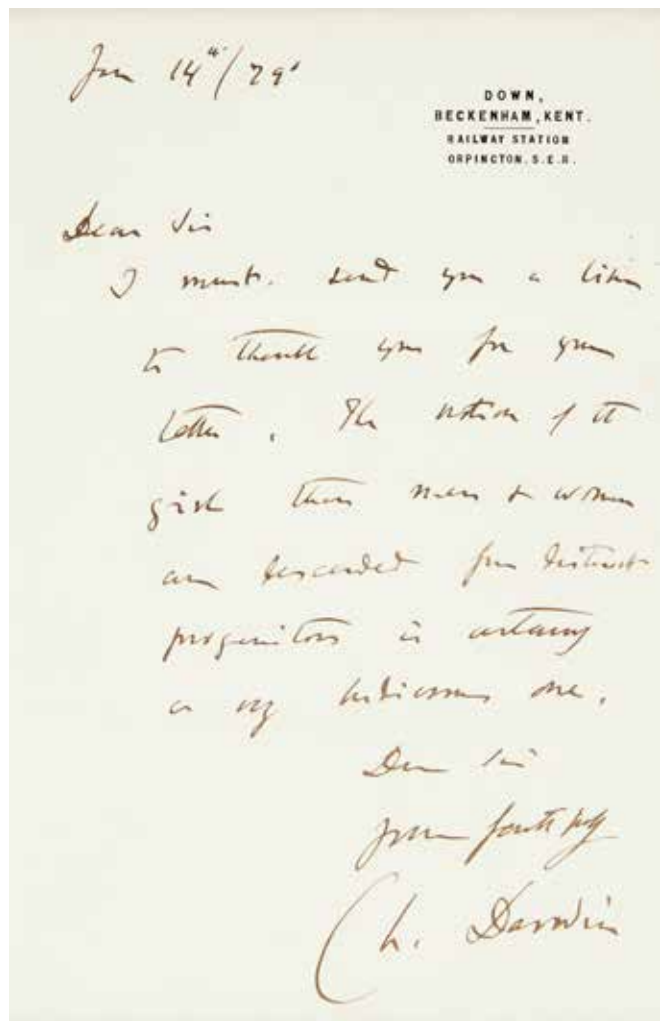 Jan 14th/79
DOWN,
BECKENHAM, KENT.
RAILWAY STATION
ORPINGTON. S.E.R.
Dear Sir
I must send you a line
to thank you for your
letter. The notion of
girl that men & women
are descended from distinct
progenitors is certainly
a very ludicrous one.
Dear Sir
Yours faithfully
Ch. Darwin